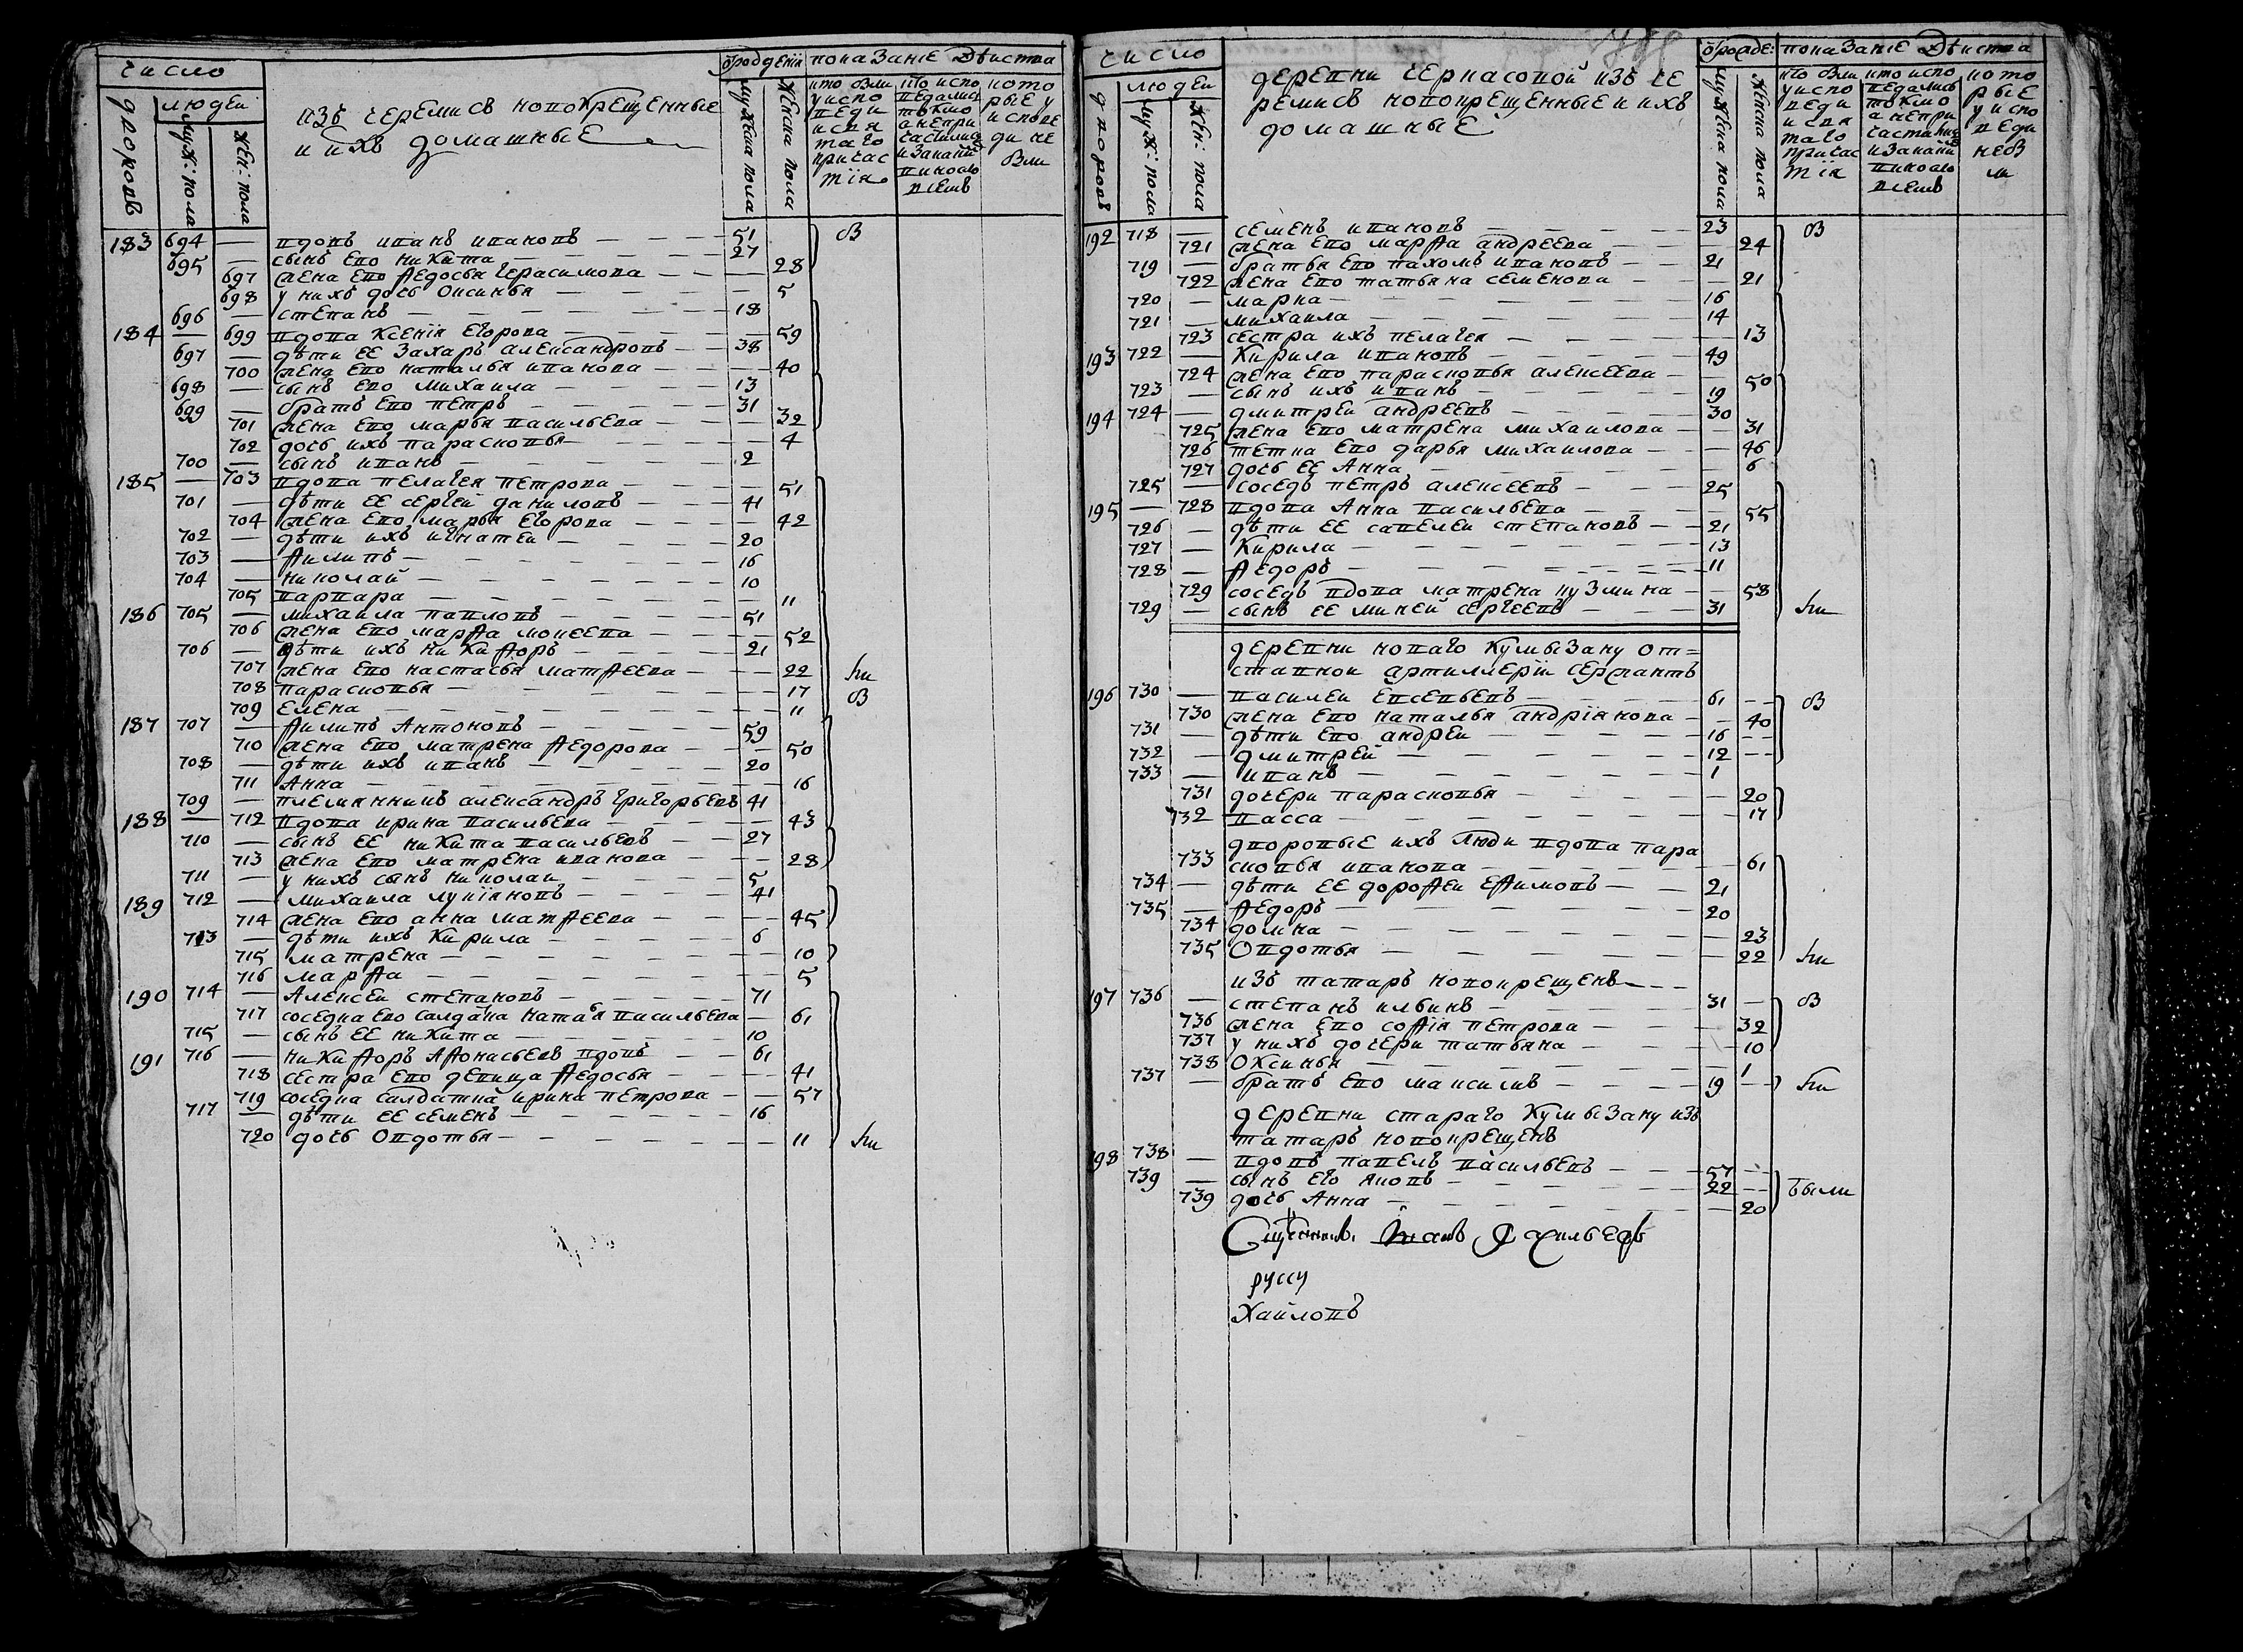 число
дворовъ
людей
муж: пола
жен: пола
изъ черемисъ новокрещенные
и ихъ домашные
показание дѣиства
мужска пола
женска пола
183 694 — вдовъ иванъ ивановъ — 51
695 — сынъ ево никита — 27
697 жена ево Ѳедосья герасимова — 28
698 у нихъ дочь Оксинья — 5
696 — степанъ — 18
184 — 699 вдова Ксения Егорова — 59
697 — дѣти ее Захаръ александровъ — 38
700 жена ево наталья иванова — 40
698 — сынъ ево михаила — 13
699 — братъ ево петръ — 31
701 жена ево марья васильева — 32
702 дочь ихъ парасковья — 4
700 — сынъ иванъ — 2
185 — 703 вдова пелагея петрова — 51
701 — дѣти ее сергей даниловъ — 41
704 жена ево марья Егорова — 42
702 — дѣти ихъ игнатеи — 20
703 — Ѳилипъ — 16
704 — николаи — 10
705 варвара — 11
186 705 — михаила павловъ — 51
706 жена ево марѳа моисеева — 52
706 — дѣти ихъ никиѳоръ — 21
707 жена ево настасья матѳеева — 22
708 парасковья — 17
709 Елена — 11
187 707 — Ѳилипъ Антоновъ — 59
710 жена ево матрена Ѳедорова — 50
708 — дѣти ихъ иванъ — 20
711 Анна — 16
709 — племянникъ александръ григорьевъ 41
188 — 712 вдова ирина васильева — 43
710 — сынъ ее никита васильевъ — 27
713 жена ево матрена иванова — 28
711 — у нихъ сынъ николаи — 5
189 712 — михаила лукіяновъ — 41
714 жена ево анна матѳеева — 45
713 — дѣти ихъ Кирила — 6
715 матрена — 10
716 марѳа — 5
190 714 — Алексеи степановъ — 71
717 соседка ево салдатка наталя васильева — 61
715 — сынъ ее никита — 10
191 716 — никиѳоръ аѳонасьевъ вдовъ — 61
718 сестра ево девица Ѳедосья — 41
719 соседка салдатка ирина петрова — 57
717 — дѣти ее семенъ — 16
720 дочь Овдотья — 11
число
дворовъ
людей
муж: пола
жен: пола
деревни черкасовой изъ че
ремисъ новокрещенные и ихъ
домашные
показание дѣиства
мужска пола
женска пола
192 718 — семенъ ивановъ — 23
721 жена ево марѳа андреева — 24
719 — братья ево пахомъ ивановъ — 21
722 жена ево татьяна семенова — 21
720 — марка — 16
721 — михаила — 14
723 сестра ихъ пелагея — 13
193 722 — Кирила ивановъ — 49
724 жена ево парасковья алексеева — 50
723 — сынъ ихъ иванъ — 19
194 724 — дмитреи андреевъ — 30
725 жена ево матрена михаилова — 31
726 тетка ево дарья михаилова — 46
727 дочь ее Анна — 6
725 — соседъ петръ алексеевъ — 25
195 — 728 вдова Анна васильева — 55
726 — дѣти ее савелеи степановъ — 21
727 — Кирила — 13
728 — Ѳедоръ — 11
729 соседъ вдова матрена кузмина — 58
729 — сынъ ее микей сергеевъ — 31
деревни новаго Кулмызану от=
ставной артиллеріи сержантъ
196 730 — василеи Евсевьевъ — 61
730 жена ево наталья андріянова — 40
731 — дѣти ево андреи — 16
732 — дмитрей — 12
733 — иванъ — 1
731 дочери парасковья — 20
732 васса — 17
дворовые ихъ люди вдова пара
733 сковья иванова — 61
734 — дѣти ее дороѳеи еѳимовъ — 21
735 — Ѳедоръ — 20
734 домна — 23
735 Овдотья — 22
изъ татаръ новокрещенъ
197 736 — степанъ ильинъ — 31
736 жена ево соѳія петрова — 32
737 у нихъ дочери татьяна — 10
738 Оксинья — 1
737 — братъ ево максимъ — 19
деревни стараго Кулмызану изъ
татаръ новокрещенъ
198 738 — вдовъ павелъ васильевъ — 57
739 — сынъ его яковъ — 22
739 дочь Анна — 20
были
руссу
Хаиловъ